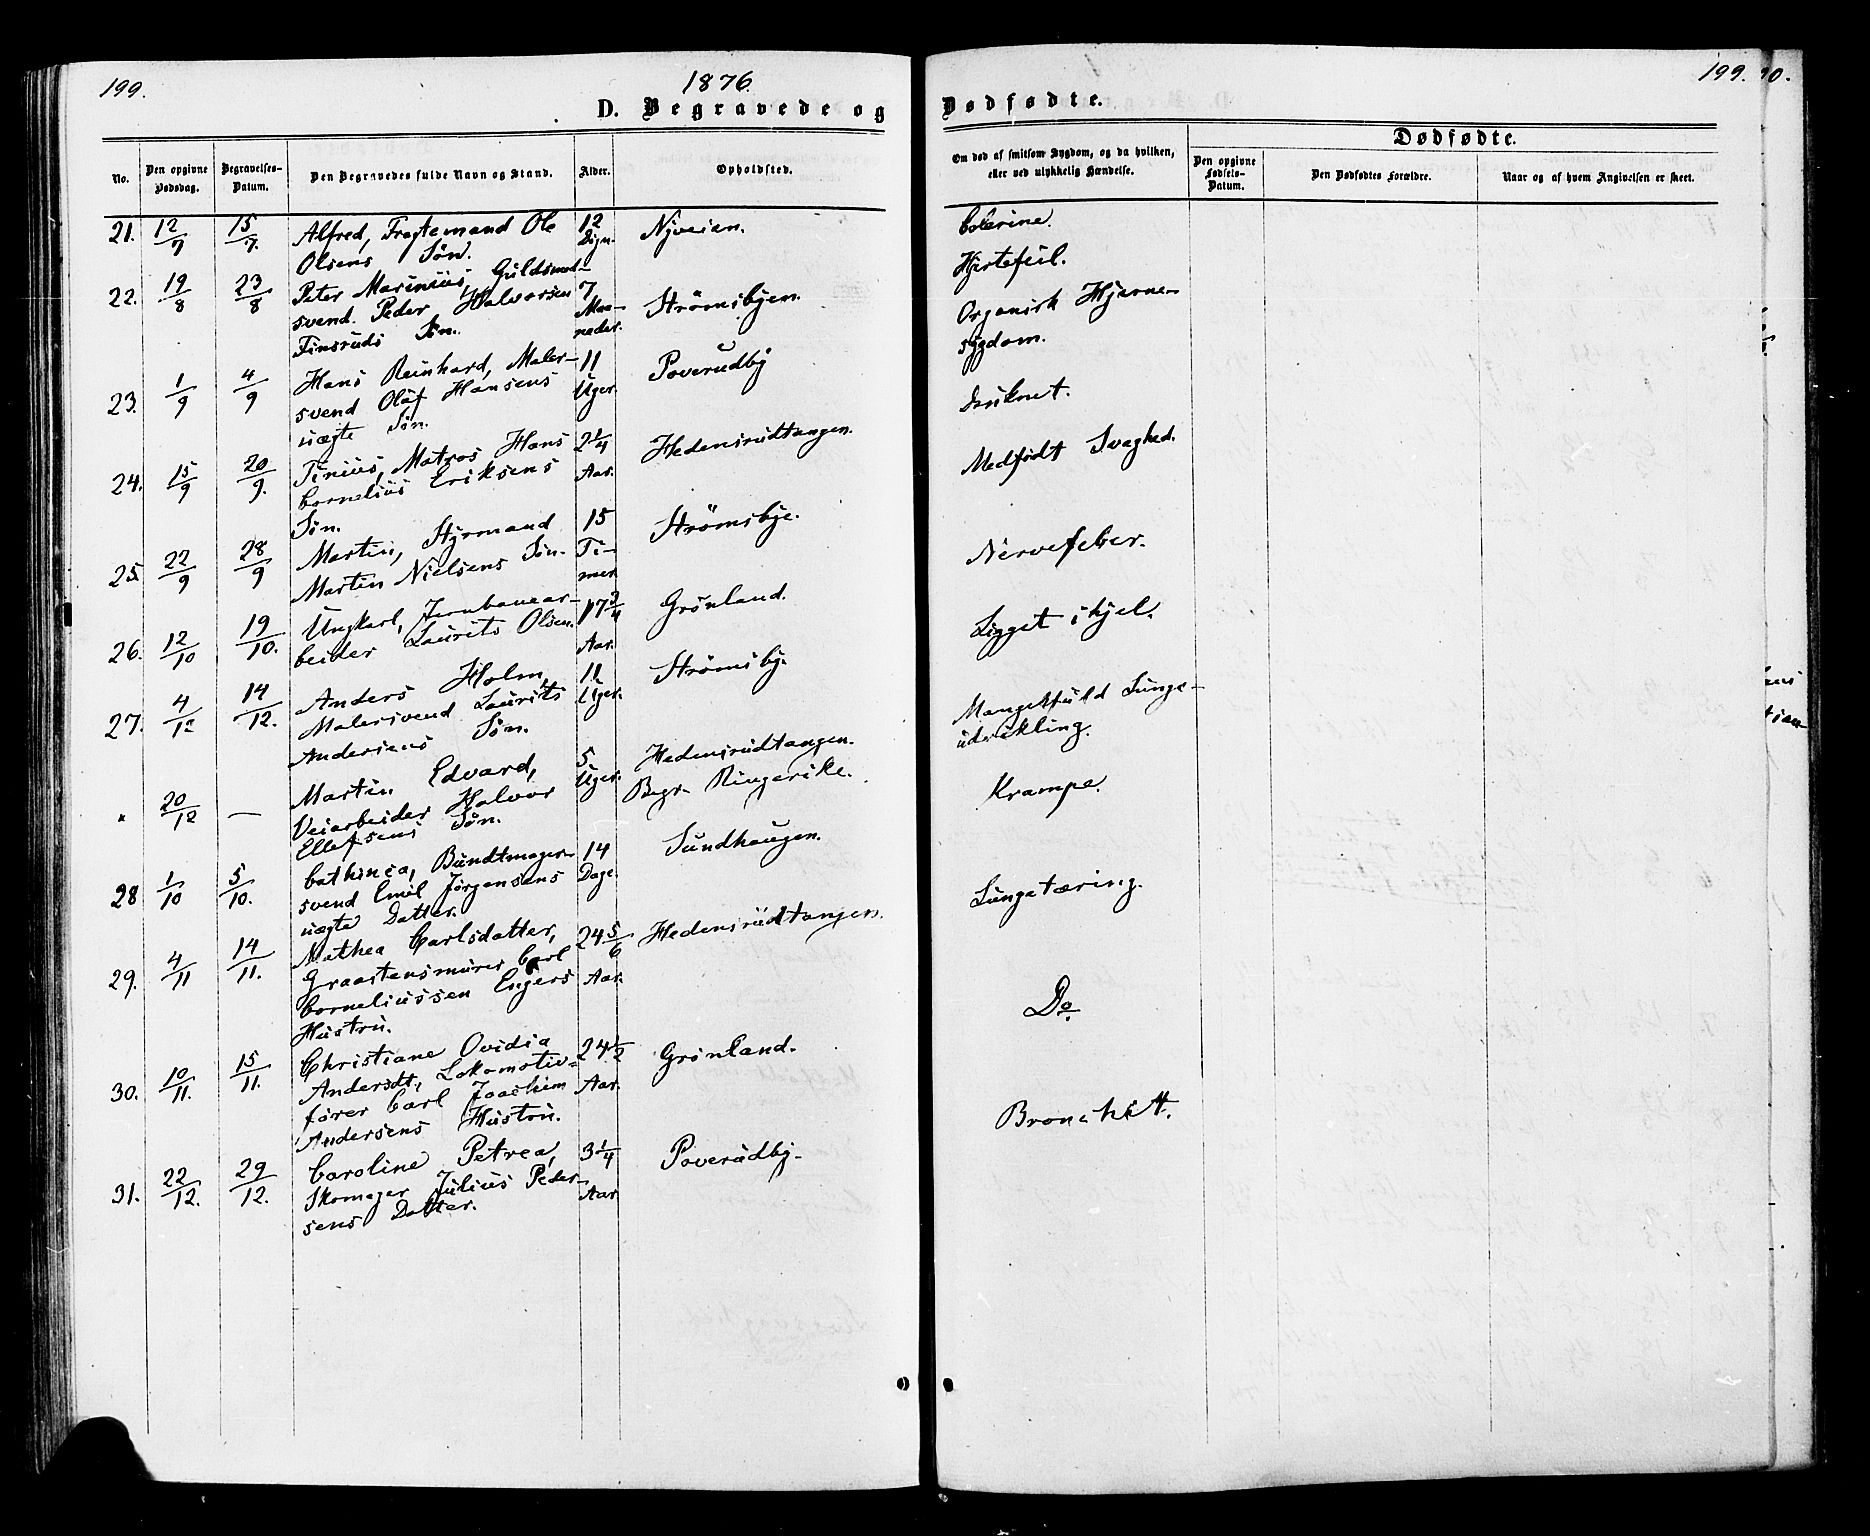 199.
1876.
D. Begravede og
No.
Den opgivne
Dødsdag.
Begravelses-
Datum.
Den Begravedes fulde Navn og Stand.
Alder.
Opholdsted.
21. 12/7 15/7. Alfred, Fragtemand Ole 12 Nyveien.
Olsens Søn. Døgn.
22. 19/8 23/8 Peter Marinius, Guldsmed- 7 Strömsbyen.
svend Peder Halvorsen Maa-
Finsruds Søn. neder.
23. 1/9 4/9 Hans Reinhard, Maler- 11 Poverudby
svend Olaf Hansens Uger.
uægte Søn.
24. 15/9 20/9. Tinius, Matros Hans 2 1/4 Hedensrudtangen.
Cornelius Eriksens Aar.
Søn.
25. 22/9 28/9 Martin, Styrmand 15 Strömsbye.
Martin Nielsens Søn. Ti-
mer
26. 12/10 19/10. Ungkarl, Jernbanear- 17 3/4 Grønland.
beider Laurits Olsen. Aar.
27. 4/12 14/12. Anders Holm, 11 Strømsby.
Malersvend Laurits Uger.
Andersens Søn.
" 20/12 — Martin Edvard, 5 Hedensrudtangen.
Veiarbeider Halvor Uger. Begr. Ringerike.
Ellefsens Søn.
28 1/10 5/10. Cathinca, Bundtmager- 14 Sundhaugen.
svend Emil Jørgensens Dage.
uægte Datter.
29. 4/11 14/11. Mathea Carlsdatter, 24 5/6 Hedensrudtangen.
Graastensmurer Carl Aar.
Corneliussen Engers
Hustru.
30. 10/11. 15/11. Christiane Ovidia 24 1/2 Grønland.
Andersdt., Lokomotiv- Aar.
fører Carl Joachim
Andersens Hustru.
31. 22/12. 29/12. Caroline Petrea, 3 1/4 Poverudby.
Skomager Julius Peder- Aar.
sens Datter.
199.
Dødfødte.
Om død af smitsom Sygdom, og da hvilken,
eller ved ulykkelig Hændelse.
Dødfødte.
Den opgivne
Fødsels-
Datum.
Den Dødfødtes Forældre.
Naar og af hvem Angivelsen er skeet.
Colerine.
Hjertefeil.
Organisk Hjerne-
sygdom.
Druknet.
Medfødt Svaghed.
Nervefeber.
Ligget ihjel.
Mangelfuld Lunge-
udvikling.
Krampe.
Lungetæring.
Do.
Bronchitt.